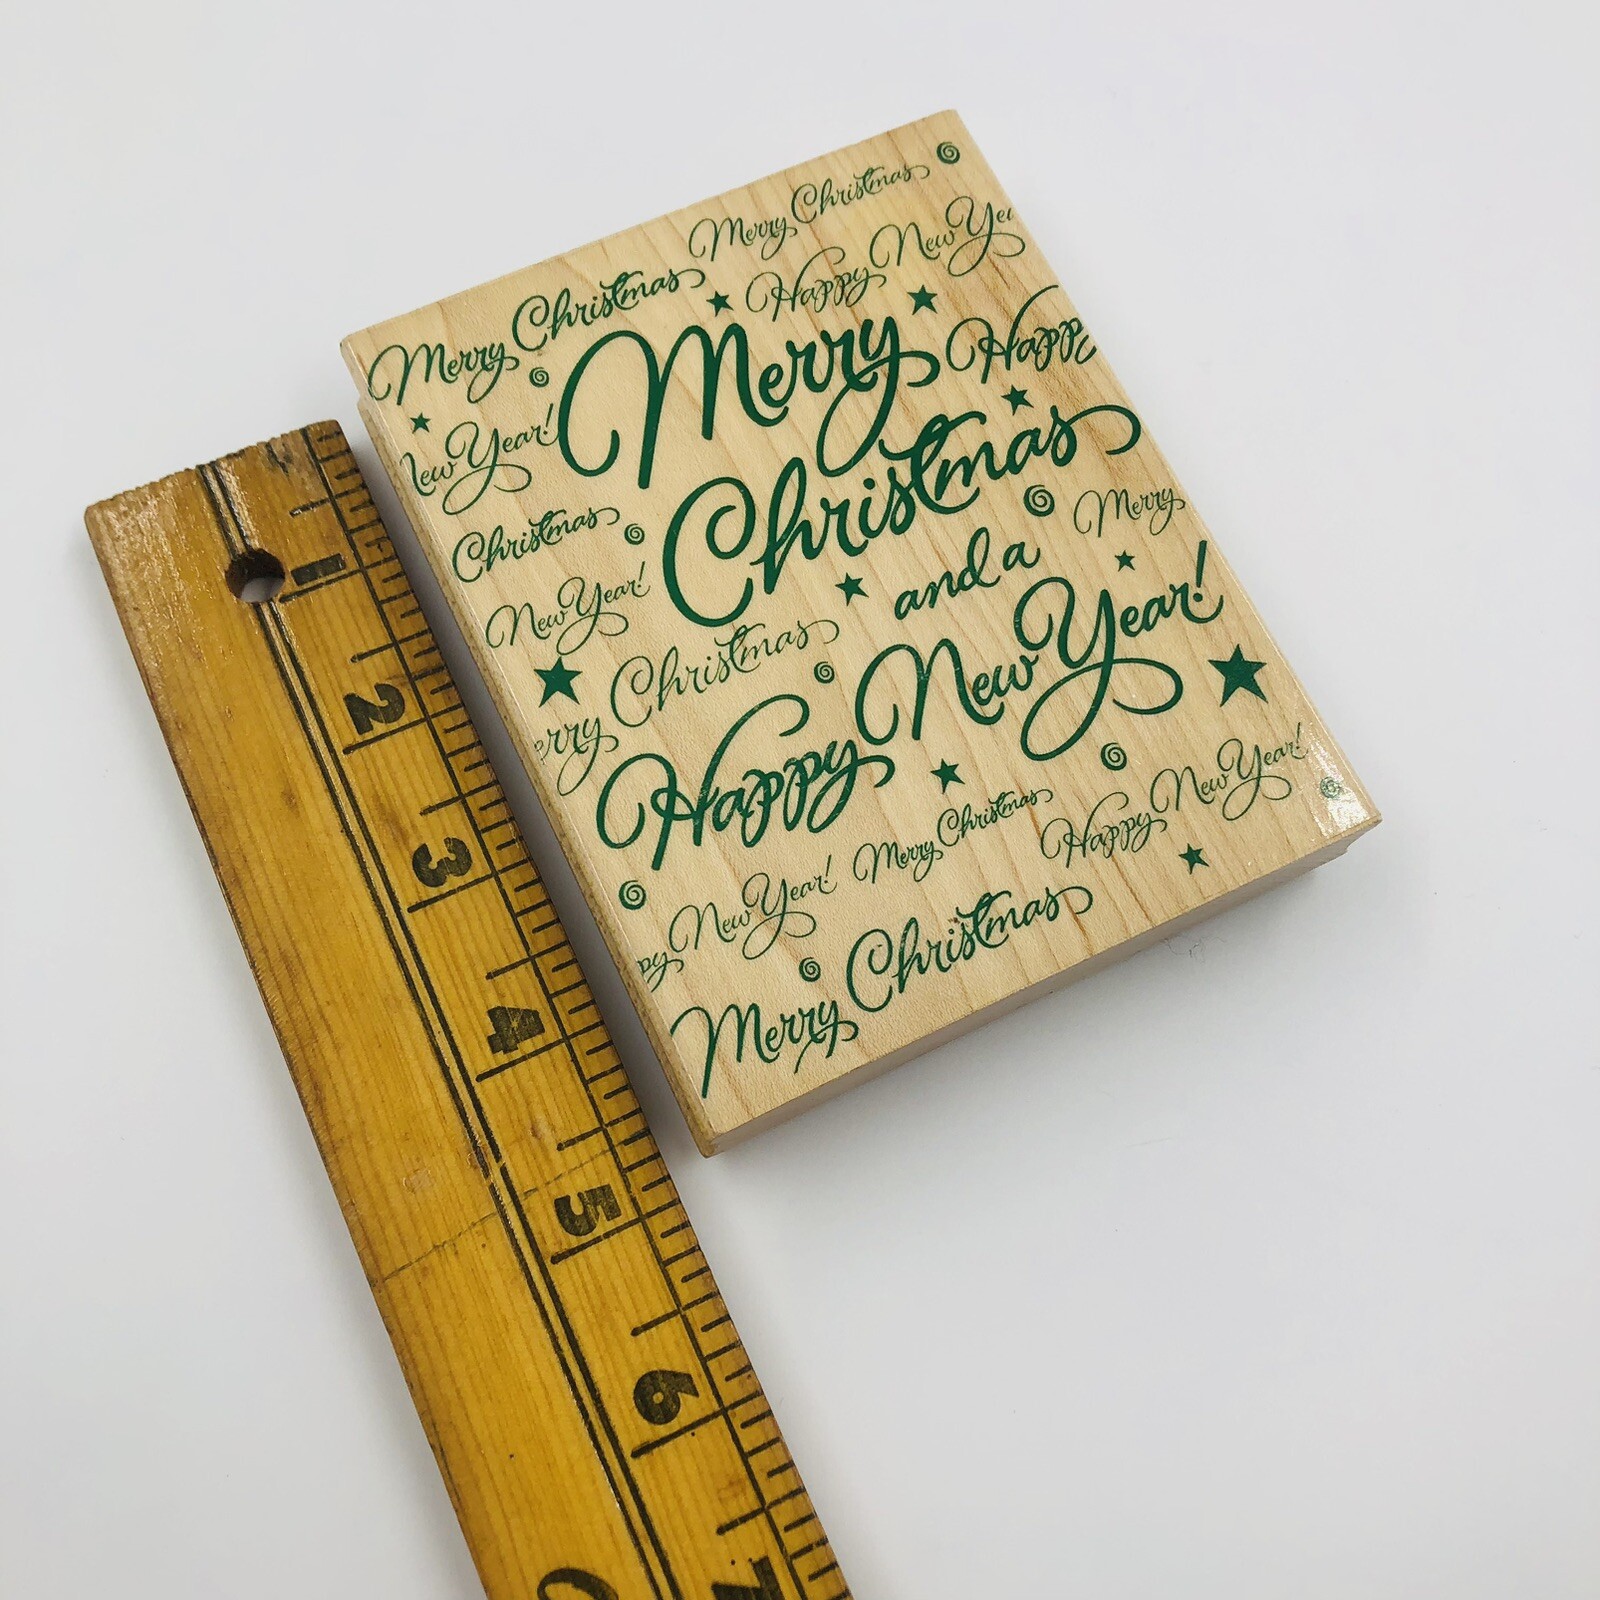 Merry Christmas
Happy New Yea
Merry Christmas
Happy
New Year!
Merry
Christmas
and a
Happy New Year!
Merry
Christmas
New Year!
erry Christmas
Happy New Year!
Merry Christmas
py New Year!
Merry Christmas
1
2
3
4
5
6
7